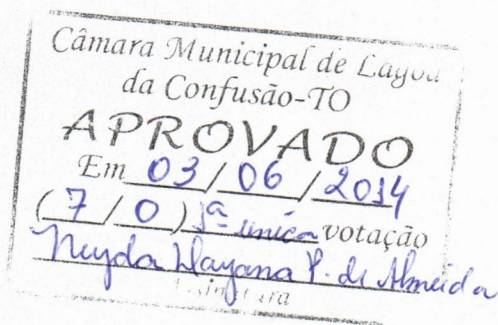 Câmara Municipal de Lagoa
da Confusão-TO
APROVADO
Em 03/06/2014
(7/0) 1ª única votação
Neyda Dayana P. de Almeida
Assinatura